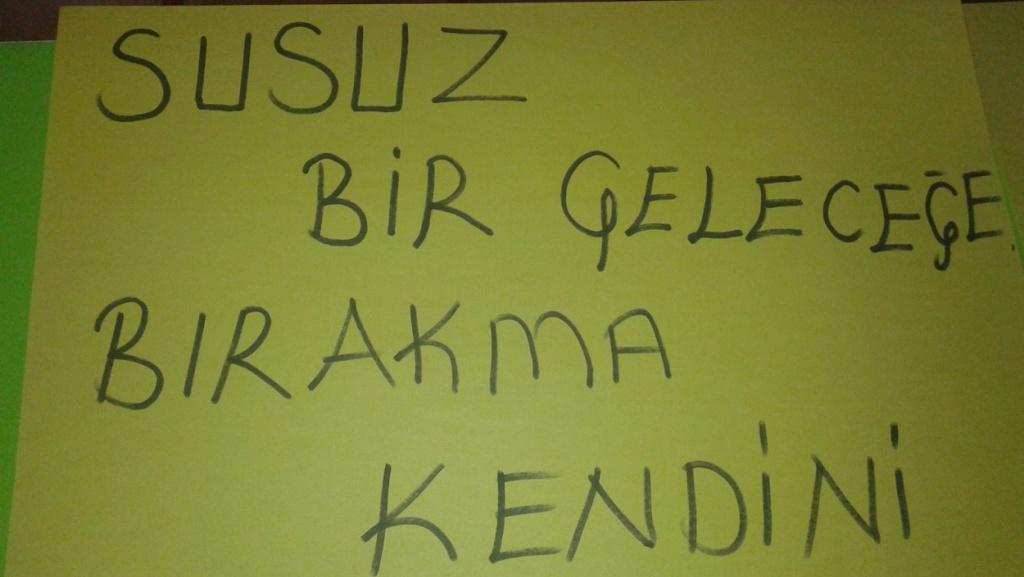 SUSUZ
BİR GELECEĞE
BIRAKMA
KENDİNİ